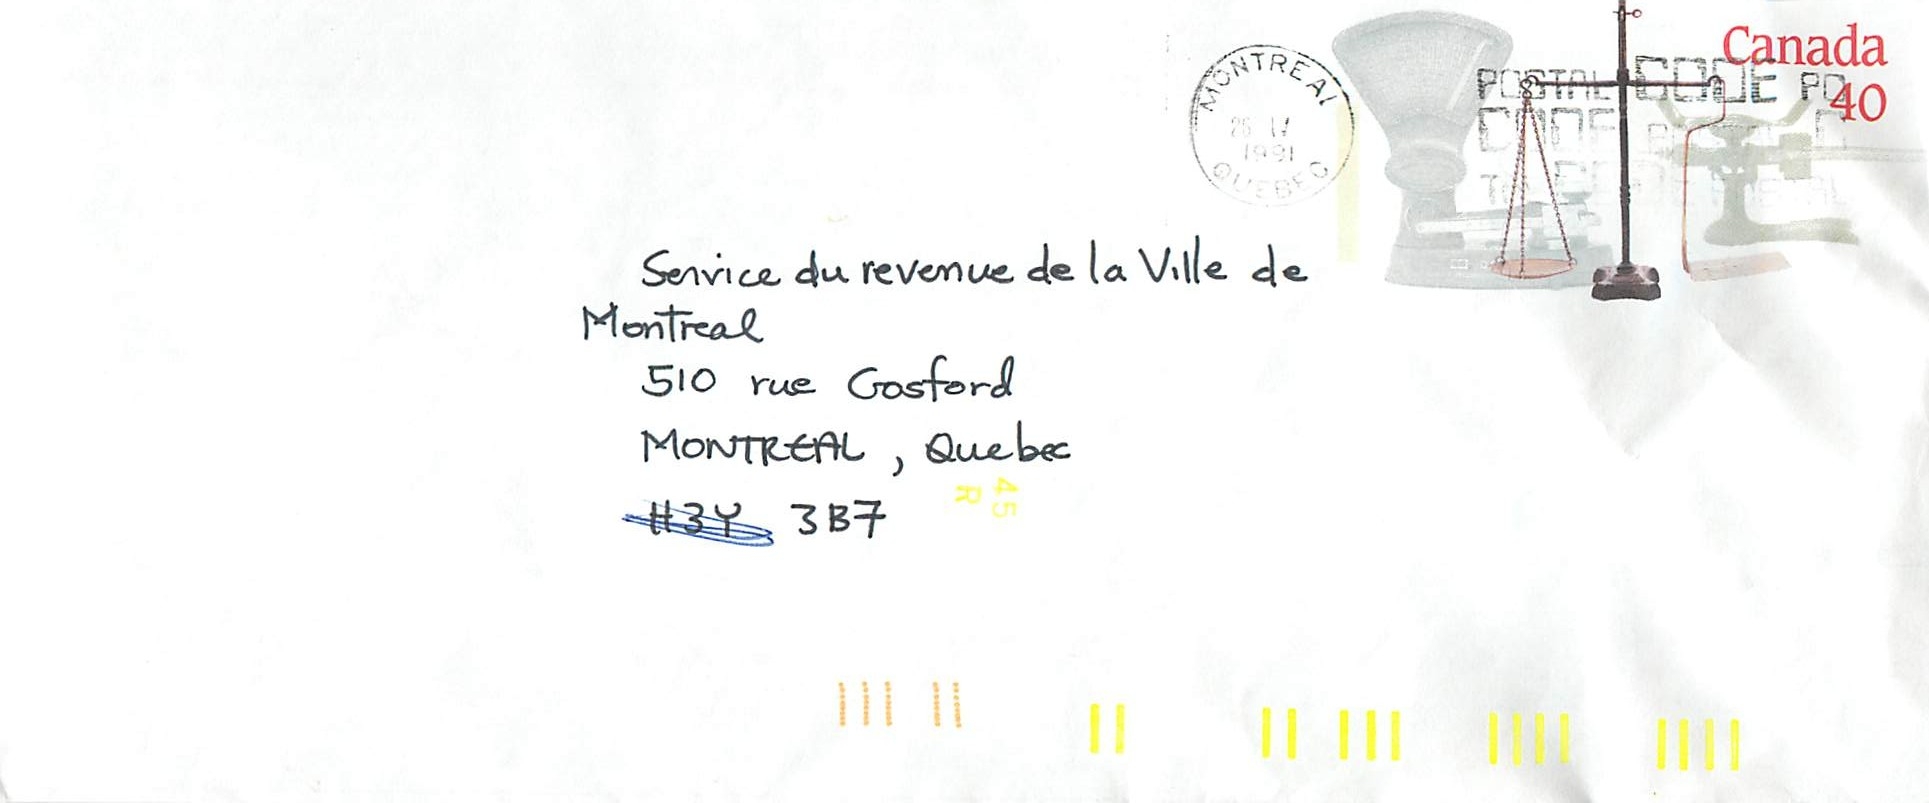 Canada
40
POSTAL CODE PO
CODE
MONTREAL
26 IV
1991
QUEBEC
Service du revenue de la Ville de
Montreal
510 rue Gosford
MONTREAL, Quebec
H3Y 3B7
45
R